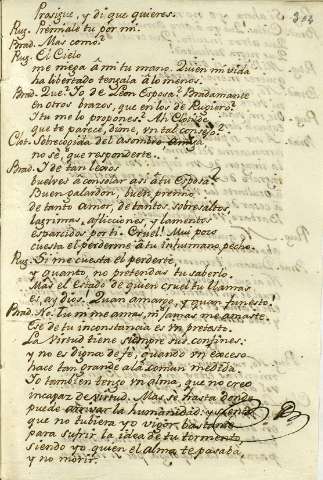 304
Prosigue, y di que quieres.
Rug. Premiale tu por mi.
Brad. Mas como?
Rug. El Cielo
me niega à mi tu mano. Quien mi vida
y la libertad tengala à lo menos.
Brad. Que? Yo de Leon Esposa? Bradamante
en otros brazos, que en los de Rugiero?
I tu me lo propones? Ah Clotilde,
que te parece, dime, un tal consejo?
Clot. Sobrecogida del asombro
no sé que responderte.
Brad. I de tan lexos
buelves à consolar asi à tu Esposa?
Buen galardon, buen premio
de tanto amor, de tantos sobresaltos,
lagrimas, aflicciones y lamentos
esparcidos por ti. Cruel! Mui poco
cuesta el perderme à tu inhumano pecho.
Rug. Si me cuesta el perderte,
y quanto, no pretendas tu saberlo.
Mas el Estado de quien cruel tu llamas
es, ay dios! Quan amargo, y quan funesto!
Brad. No. Tu ni me amas, ni jamas me amaste.
Ese de tu inconstancia es un pretesto.
La virtud tiene siempre sus confines:
y no es digna de fe, quando un exceso
hace tan grande a la comun medida.
Yo tambien tengo un alma, que no creo
incapaz de virtud. Mas se hasta donde
puede la humanidad: y siento
que no tubiera yo vigor bastante
para sufrir la idea de tu tormento,
siendo yo quien el alma te pasaba,
y no morir.